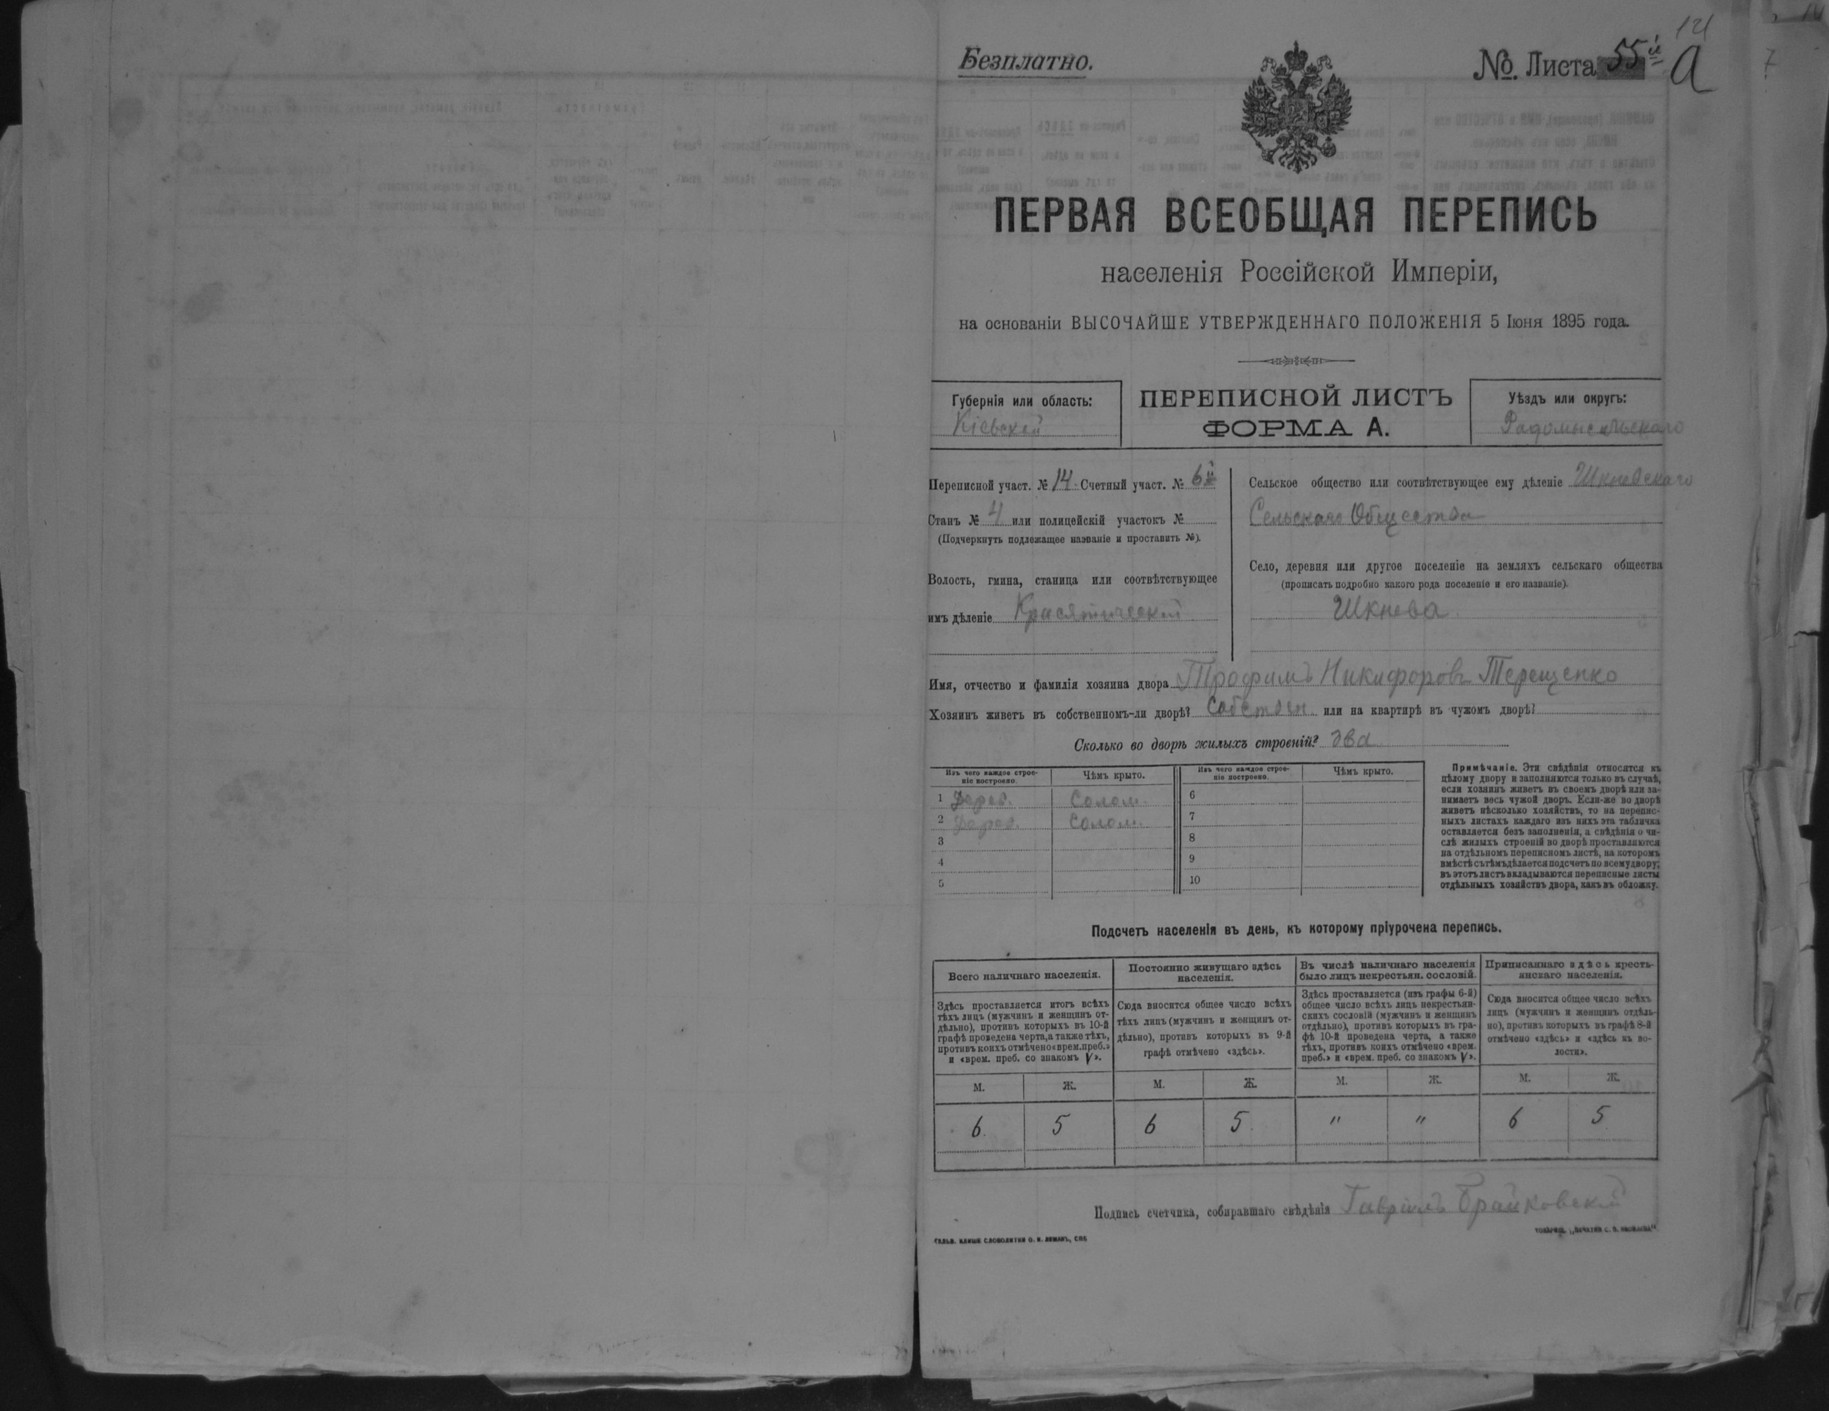 Безплатно.
№. Листа 55й а
14
ПЕРВАЯ ВСЕОБЩАЯ ПЕРЕПИСЬ
населенія Россійской Имперіи,
на основаніи ВЫСОЧАЙШЕ УТВЕРЖДЕННАГО ПОЛОЖЕНІЯ 5 Іюня 1895 года.
Губернія или область:
Кіевской
ПЕРЕПИСНОЙ ЛИСТЪ
ФОРМА А.
Уѣздъ или округъ:
Радомысльскаго
Переписной участ. № 14 Счетный участ. № 6й
Станъ № 4 или полицейскій участокъ №
(Подчеркнуть подлежащее названіе и проставить №).
Волость, гмина, станица или соотвѣтствующее
имъ дѣленіе Красятической
Сельское общество или соотвѣтствующее ему дѣленіе Шкневскаго
Сельскаго Общества
Село, деревня или другое поселеніе на земляхъ сельскаго общества
(прописать подробно какого рода поселеніе и его названіе).
Шкнева
Имя, отчество и фамилія хозяина двора Трофимъ Никифоровъ Терещенко
Хозяинъ живетъ въ собственномъ-ли дворѣ? Собствен. или на квартирѣ въ чужомъ дворѣ?
Сколько во дворѣ жилыхъ строеній? два
Изъ чего каждое строе-
ніе построено.
Чѣмъ крыто.
Изъ чего каждое строе-
ніе построено.
Чѣмъ крыто.
1 Дерев. Солом. 6
2 Дерев. Солом. 7
3 8
4 9
5 10
Примѣчаніе. Эти свѣдѣнія относятся къ
цѣлому двору и заполняются только въ случаѣ,
если хозяинъ живетъ въ своемъ дворѣ или за-
нимаетъ весь чужой дворъ. Если-же во дворѣ
живетъ нѣсколько хозяйствъ, то на перепис-
ныхъ листахъ каждаго изъ нихъ эта табличка
оставляется безъ заполненія, а свѣдѣнія о чи-
слѣ жилыхъ строеній во дворѣ проставляются
на отдѣльномъ переписномъ листѣ, на которомъ
вмѣстѣ съ тѣмъ дѣлается подсчетъ по всему двору;
въ этотъ листъ вкладываются переписные листы
отдѣльныхъ хозяйствъ двора, какъ въ обложку.
Подсчетъ населенія въ день, къ которому пріурочена перепись.
Всего наличнаго населенія.
Здѣсь проставляется итогъ всѣхъ
тѣхъ лицъ (мужчинъ и женщинъ от-
дѣльно), противъ которыхъ въ 10-й
графѣ проведена черта, а также тѣхъ,
противъ коихъ отмѣчено «врем. преб.»
и «врем. преб. со знакомъ V».
Постоянно живущаго здѣсь
населенія.
Сюда вносится общее число всѣхъ
тѣхъ лицъ (мужчинъ и женщинъ от-
дѣльно), противъ которыхъ въ 9-й
графѣ отмѣчено «здѣсь».
Въ числѣ наличнаго населенія
было лицъ некрестьян. сословій.
Здѣсь проставляется (изъ графы 6-й)
общее число всѣхъ лицъ некрестьян-
скихъ сословій (мужчинъ и женщинъ
отдѣльно), противъ которыхъ въ гра-
фѣ 10-й проведена черта, а также
тѣхъ, противъ коихъ отмѣчено «врем.
преб.» и «врем. преб. со знакомъ V».
Приписаннаго здѣсь кресть-
янскаго населенія.
Сюда вносится общее число всѣхъ
лицъ (мужчинъ и женщинъ отдѣль-
но), противъ которыхъ въ графѣ 8-й
отмѣчено «здѣсь» и «здѣсь къ во-
лости».
М. Ж. М. Ж. М. Ж. М. Ж.
6 5 6 5 " " 6 5
Подпись счетчика, собиравшаго свѣдѣнія Гавріилъ Брайковскій